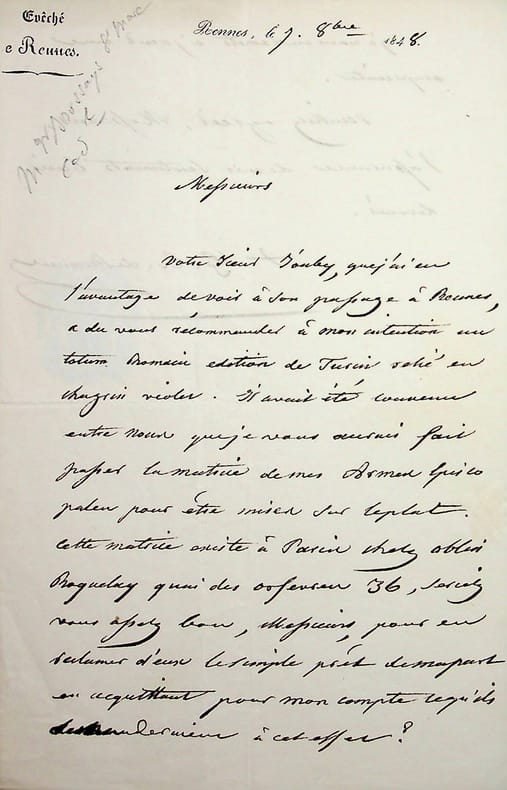 Evêché
e Rennes.
Rennes, le 7. 8bre 1848.
Messieurs
Votre Sieur Jouby, que j'ai eu
l'avantage de voir à son passage à Rennes,
a du vous récommander à mon intention un
totum Romain edition de Turin relié en
chagrin violet. Il avait été convenu
entre nous que je vous aurais fait
passer la matrice de mes Armes épisco
pales pour être mises sur le plat.
Cette matrice existe à Paris chez
quai des orfevres 36, seriez
vous assez bons, Messieurs, pour en
reclamer d'eux le simple prêt de ma part
en acquittant pour mon compte ce qu'ils
à cet effet ?